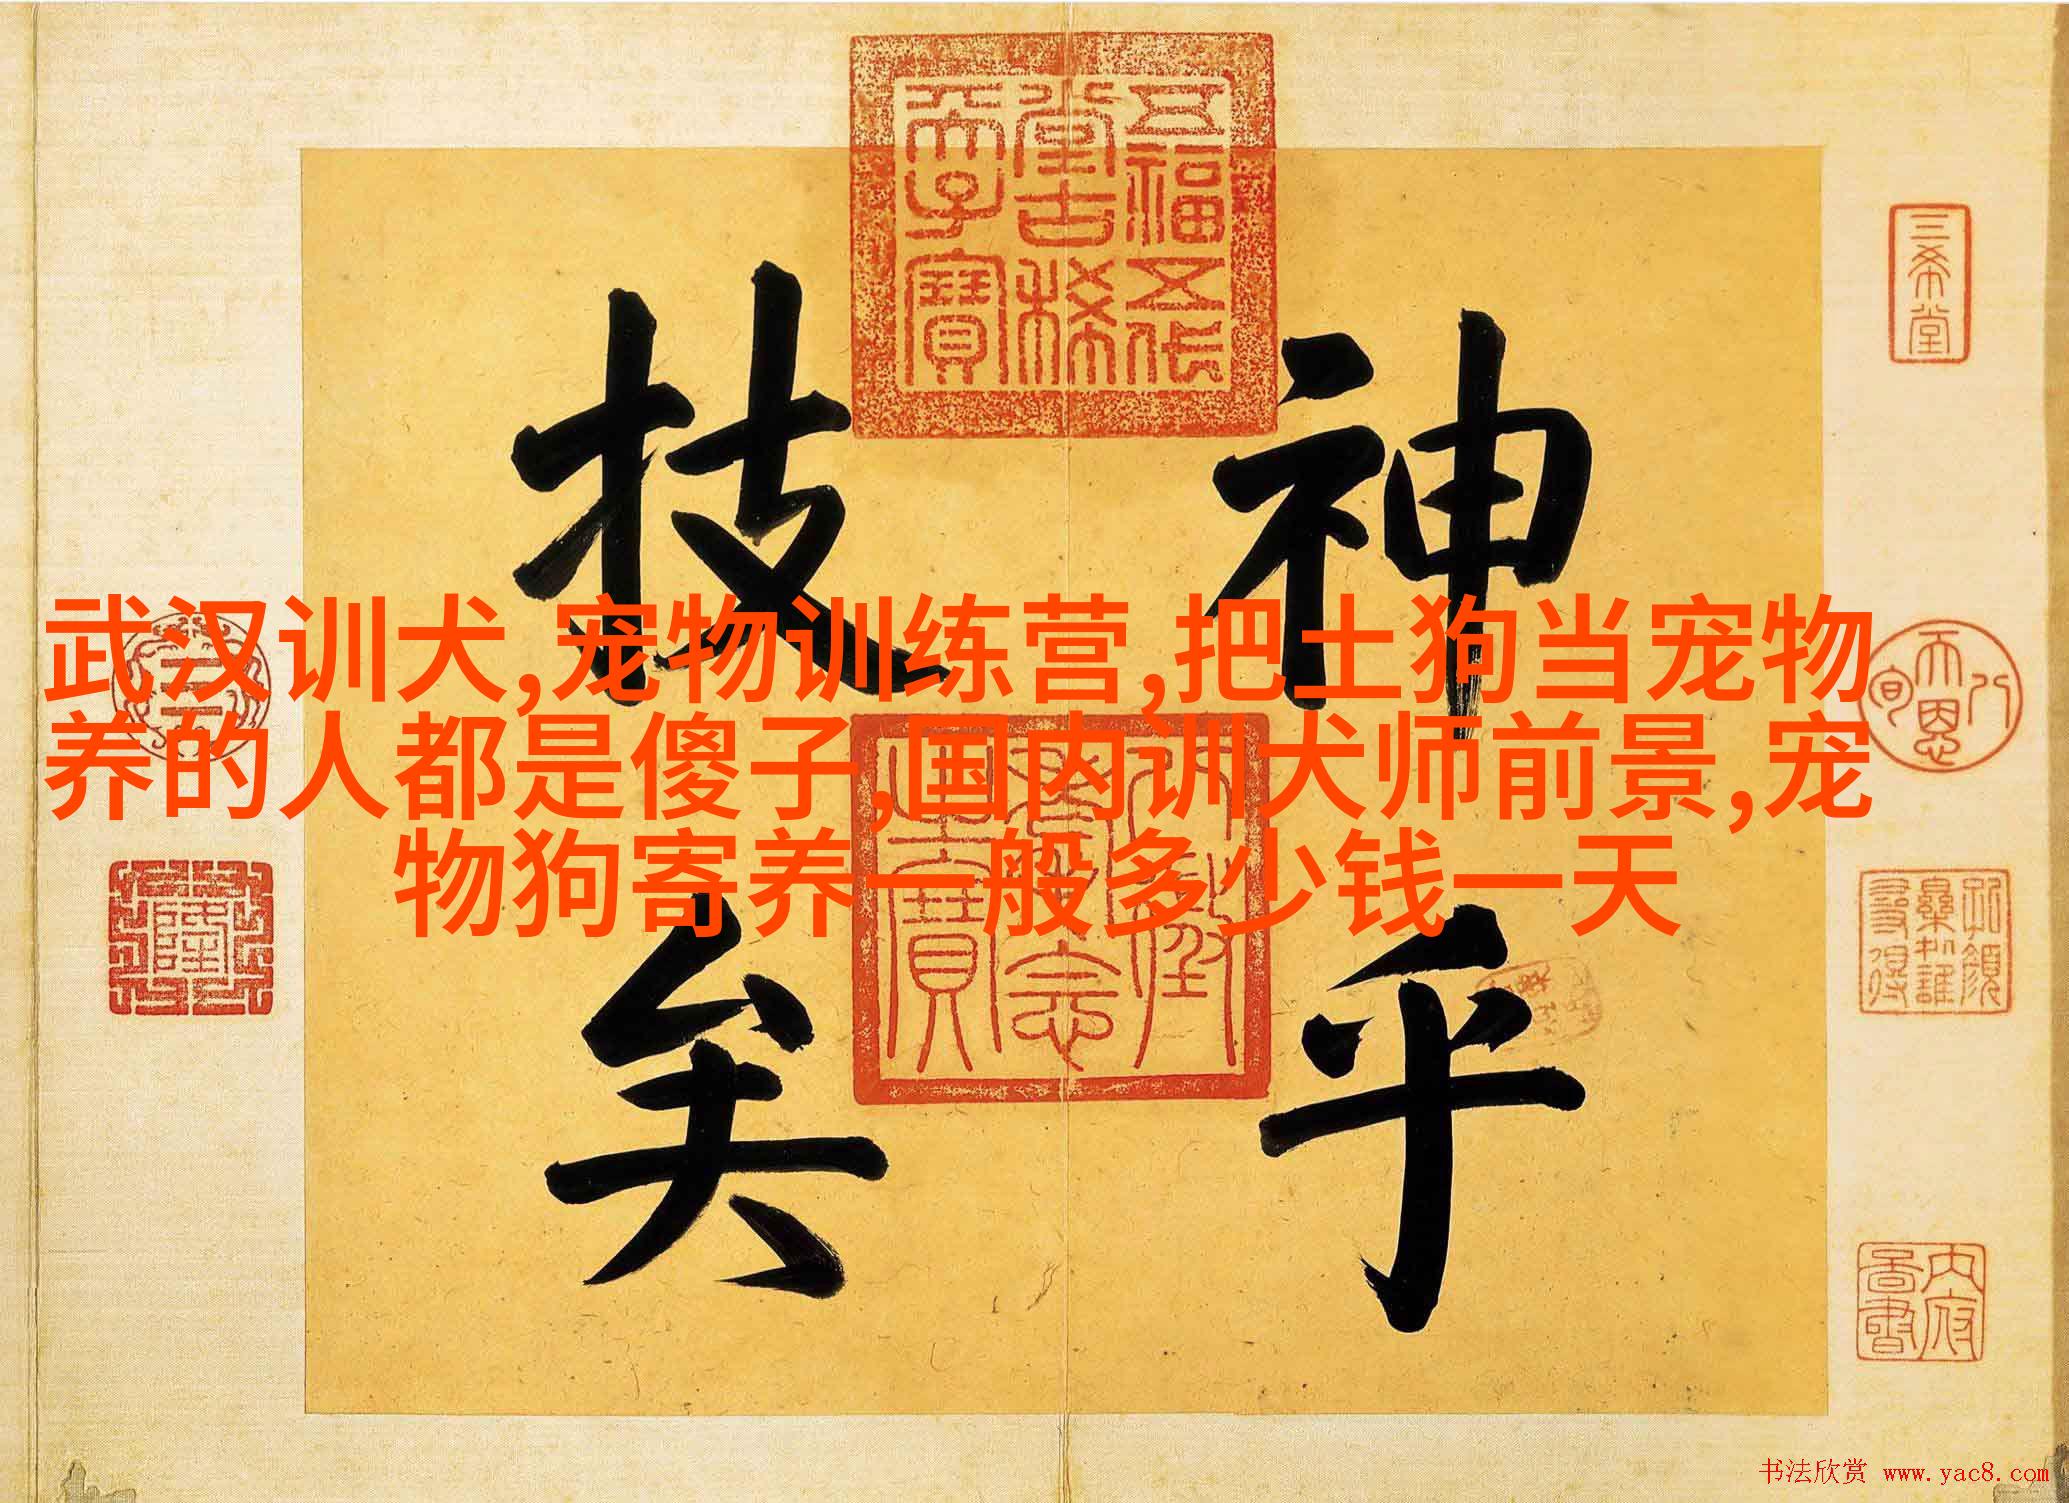 武汉训犬,宠物训练营,把土狗当宠物
养的人都是傻子,国内训犬师前景,宠
物狗寄养一般多少钱一天
神乎
技矣
五福五代
堂古稀
天子寶
八徵
耄念
之寶
三希堂
内府
書畫
书法欣赏 www.yac8.com